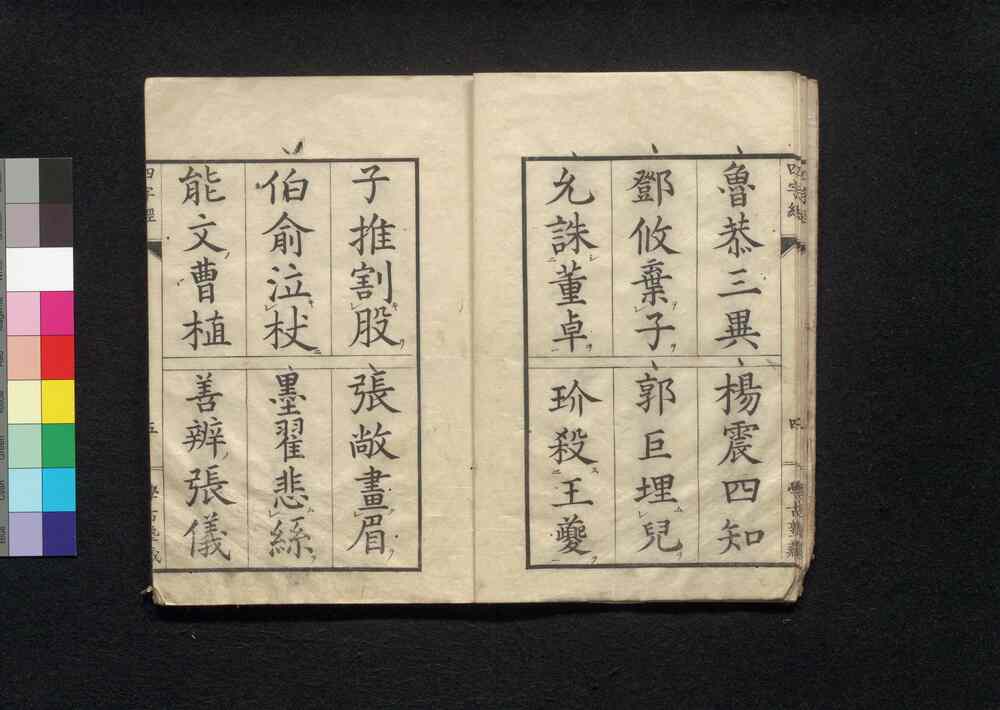 魯恭三異
楊震四知
鄧攸棄子
郭巨埋兒
允誅董卓
玠殺王夔
子推割股
張敞畫眉
伯俞泣杖
墨翟悲絲
能文曹植
善辨張儀
四字經
五